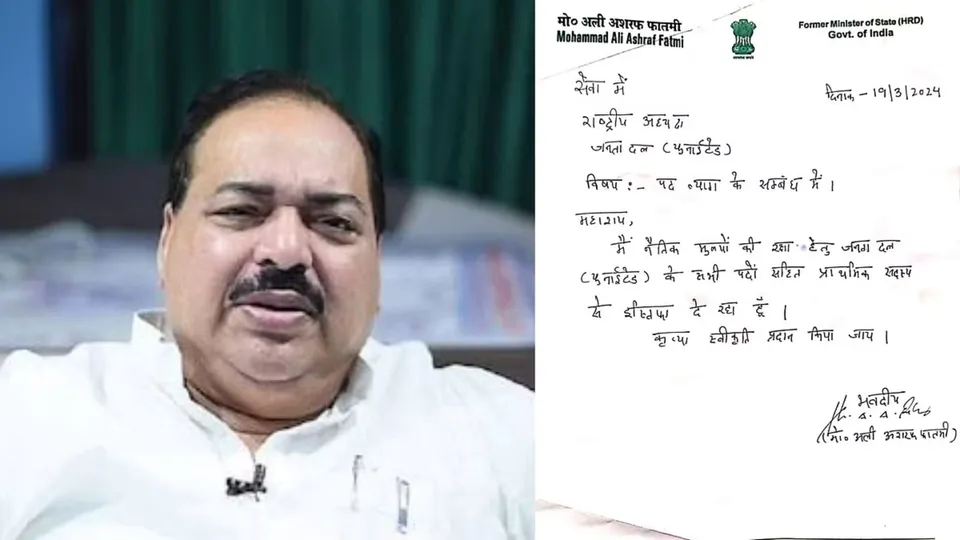 मो० अली अशरफ फातमी
Mohammad Ali Ashraf Fatmi
Former Minister of State (HRD)
Govt. of India
सेवा में
दिनांक - 19/3/2024
राष्ट्रीय अध्यक्ष
जनता दल (यूनाईटेड)
विषय :- पद त्याग के सम्बंध में ।
महाशय,
मैं नैतिक मुल्यों की रक्षा हेतु जनता दल
(यूनाईटेड) के सभी पदों सहित प्राथमिक सदस्य
से इस्तिफा दे रहा हूँ ।
कृप्या स्वीकृति प्रदान किया जाय ।
भवदीय
(मो० अली अशरफ फातमी)